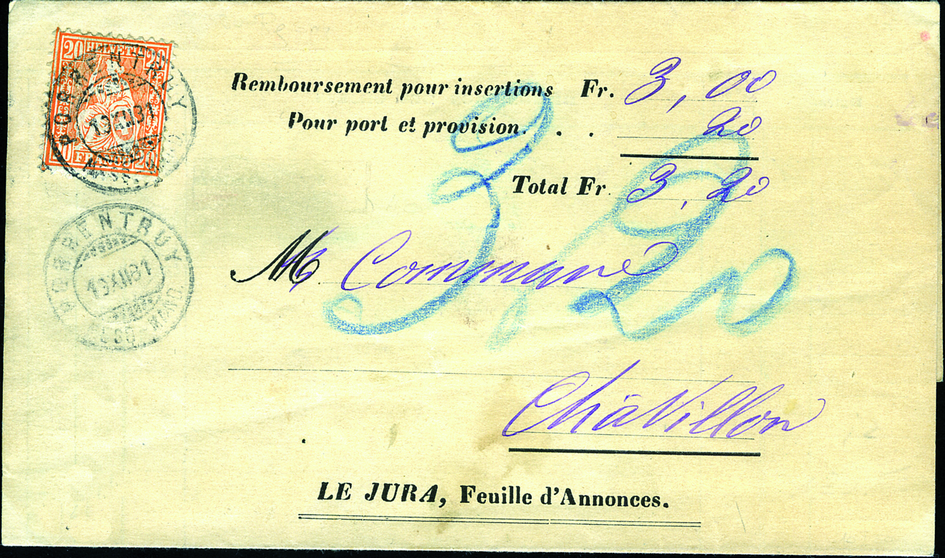 20 HELVETIA 20
PORRENTRUY
13 XII 81
Remboursement pour insertions Fr. 3,00
Pour port et provision. . . 20
Total Fr. 3,20
3,20
PORRENTRUY
13 XII 81
M Commune
Châvillon
LE JURA, Feuille d'Annonces.